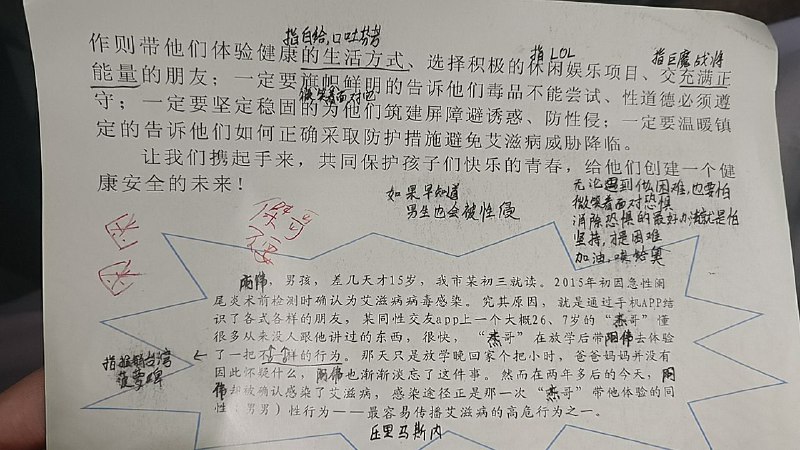 指白给，口吐芬芳
指LOL
指巨魔战将
作则带他们体验健康的生活方式、选择积极的休闲娱乐项目、交充满正
能量的朋友；一定要旗帜鲜明的告诉他们毒品不能尝试、性道德必须遵
微笑着面对它
守；一定要坚定稳固的为他们筑建屏障避诱惑、防性侵；一定要温暖镇
定的告诉他们如何正确采取防护措施避免艾滋病威胁降临。
让我们携起手来，共同保护孩子们快乐的青春，给他们创建一个健
康安全的未来！
如果早知道
男生也会被性侵
无论遇到什么困难，也要怕
微笑着面对恐惧
消除恐惧的最好办法就是怕
坚持，才是困难
加油，奥给
杰哥
不要
阿伟，男孩，差几天才15岁，我市某初三就读。2015年初因急性阑
尾炎术前检测时确认为艾滋病病毒感染。究其原因，就是通过手机APP结
识了各式各样的朋友，某同性交友app上一个大概26、7岁的“杰哥”懂
很多从来没人跟他讲过的东西，很快，“杰哥”在放学后带阿伟去体验
了一把不一样的行为。那天只是放学晚回家个把小时，爸爸妈妈并没有
因此怀疑什么，阿伟也渐渐淡忘了这件事。然而在两年多后的今天，阿
伟却被确认感染了艾滋病，感染途径正是那一次“杰哥”带他体验的同
性（男男）性行为——最容易传播艾滋病的高危行为之一。
指推销台湾
菠萝啤
压里马斯内